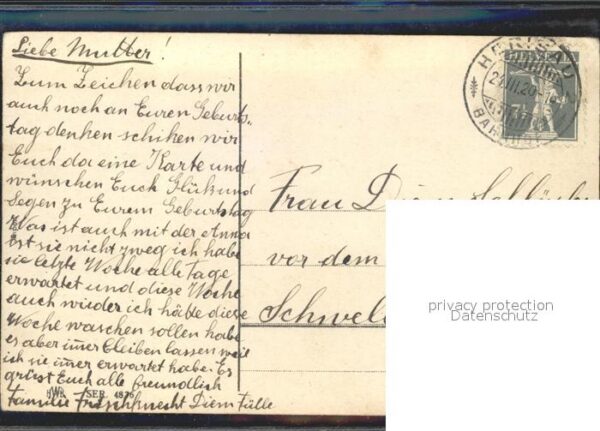 Liebe Mutter!
Zum Zeichen dass wir
auch noch an Euren Geburts-
tag denken schiken wir
Euch da eine Karte und
wünschen Euch Glük und
Segen zu Eurem Geburtstag
Was ist auch mit der Anna
ist sie nicht zweg ich habe
sie letzte Woche alle Tage
erwartet und diese Woche
auch wieder ich hätte diese
Woche waschen sollen habe
es aber imer bleiben lassen weil
ich sie imer erwartet habe. Es
grüsst Euch alle freundlich
Familie Frischknecht Diem Fülle
SER. 4876
HERISAU
Frau Diem
vor dem
Schwel
privacy protection
Datenschutz